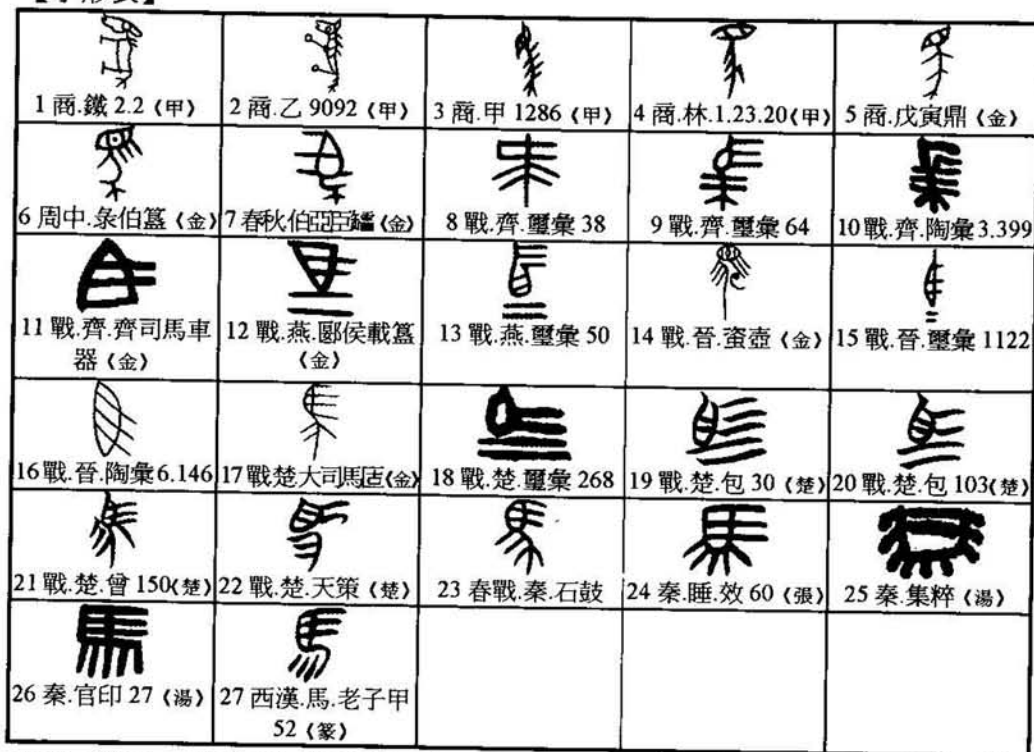 1 商.鐵 2.2〈甲〉
2 商.乙 9092〈甲〉
3 商.甲 1286〈甲〉
4 商.林.1.23.20〈甲〉
5 商.戊寅鼎〈金〉
6 周中.彔伯簋〈金〉
7 春秋.伯亞臣𦉢〈金〉
8 戰.齊.璽彙 38
9 戰.齊.璽彙 64
10 戰.齊.陶彙 3.399
11 戰.齊.齊司馬車
器〈金〉
12 戰.燕.郾侯載簋
〈金〉
13 戰.燕.璽彙 50
14 戰.晉.𧊒壺〈金〉
15 戰.晉.璽彙 1122
16 戰.晉.陶彙 6.146
17 戰楚大司馬匜〈金〉
18 戰.楚.璽彙 268
19 戰.楚.包 30〈楚〉
20 戰.楚.包 103〈楚〉
21 戰.楚.曾 150〈楚〉
22 戰.楚.天策〈楚〉
23 春戰.秦.石鼓
24 秦.睡.效 60〈張〉
25 秦.集粹〈湯〉
26 秦.官印 27〈湯〉
27 西漢.馬.老子甲
52〈篆〉